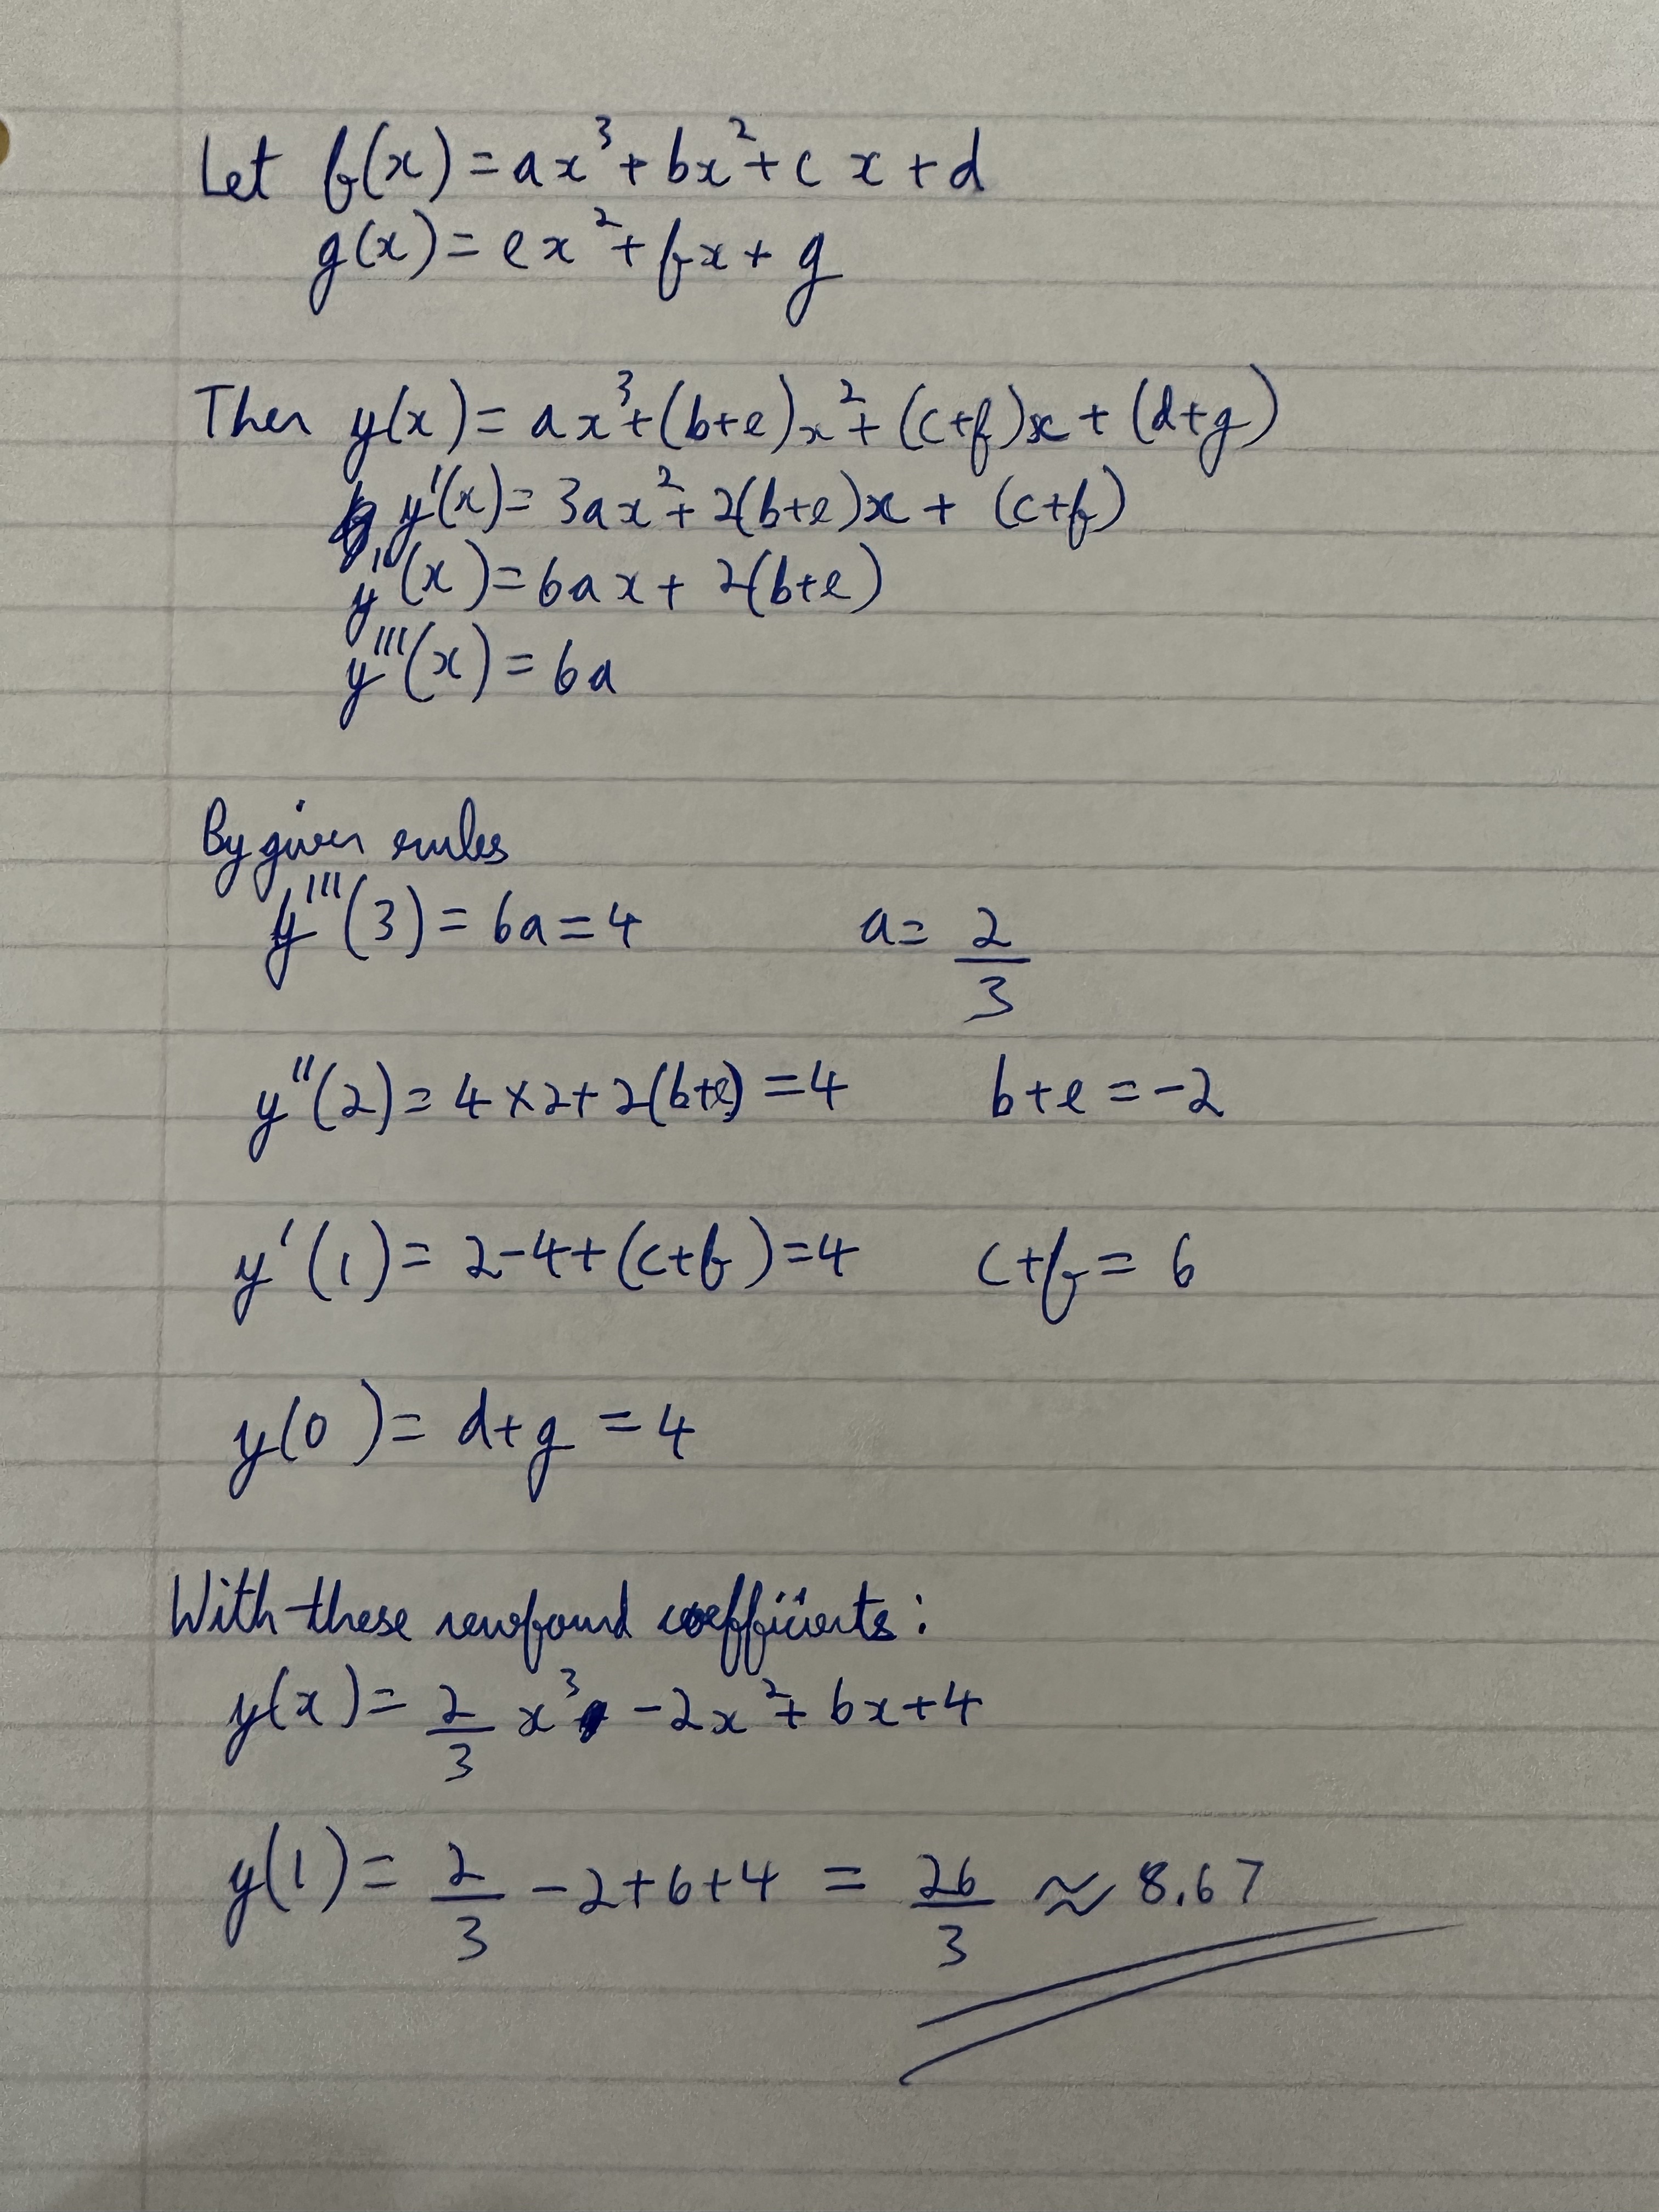 Let f(x) = ax³ + bx² + cx + d
g(x) = ex² + fx + g
Then y(x) = ax³ + (b+e)x² + (c+f)x + (d+g)
y'(x) = 3ax² + 2(b+e)x + (c+f)
y''(x) = 6ax + 2(b+e)
y'''(x) = 6a
By given rules
y'''(3) = 6a = 4 a = 2/3
y''(2) = 4×2 + 2(b+e) = 4 b+e = -2
y'(1) = 2-4+(c+f) = 4 c+f = 6
y(0) = d+g = 4
With these newfound coefficients:
y(x) = 2/3 x³ - 2x² + 6x + 4
y(1) = 2/3 - 2 + 6 + 4 = 26/3 ≈ 8.67